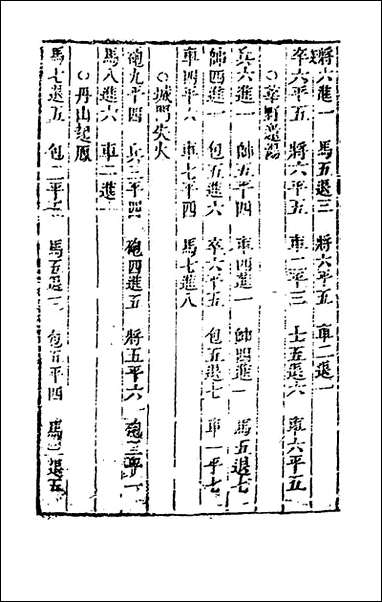 將六進一 馬五退三 將六平五 車二退一
卒六平五 將六平五 車二平三 士五退六 車六平五
○莘野遇湯
兵六進一 帥五平四 車四進一 帥四進一 馬五退七
帥四進一 包五進六 卒六平五 包五退七 車一平七
車四平六 車七平四 馬七進八
○城門失火
砲九平四 兵三平四 砲四進五 將五平六 砲三平一
馬八進六 車二進二
○丹山起鳳
馬七退五 包二平七 馬五退三 包五平四 馬三退五